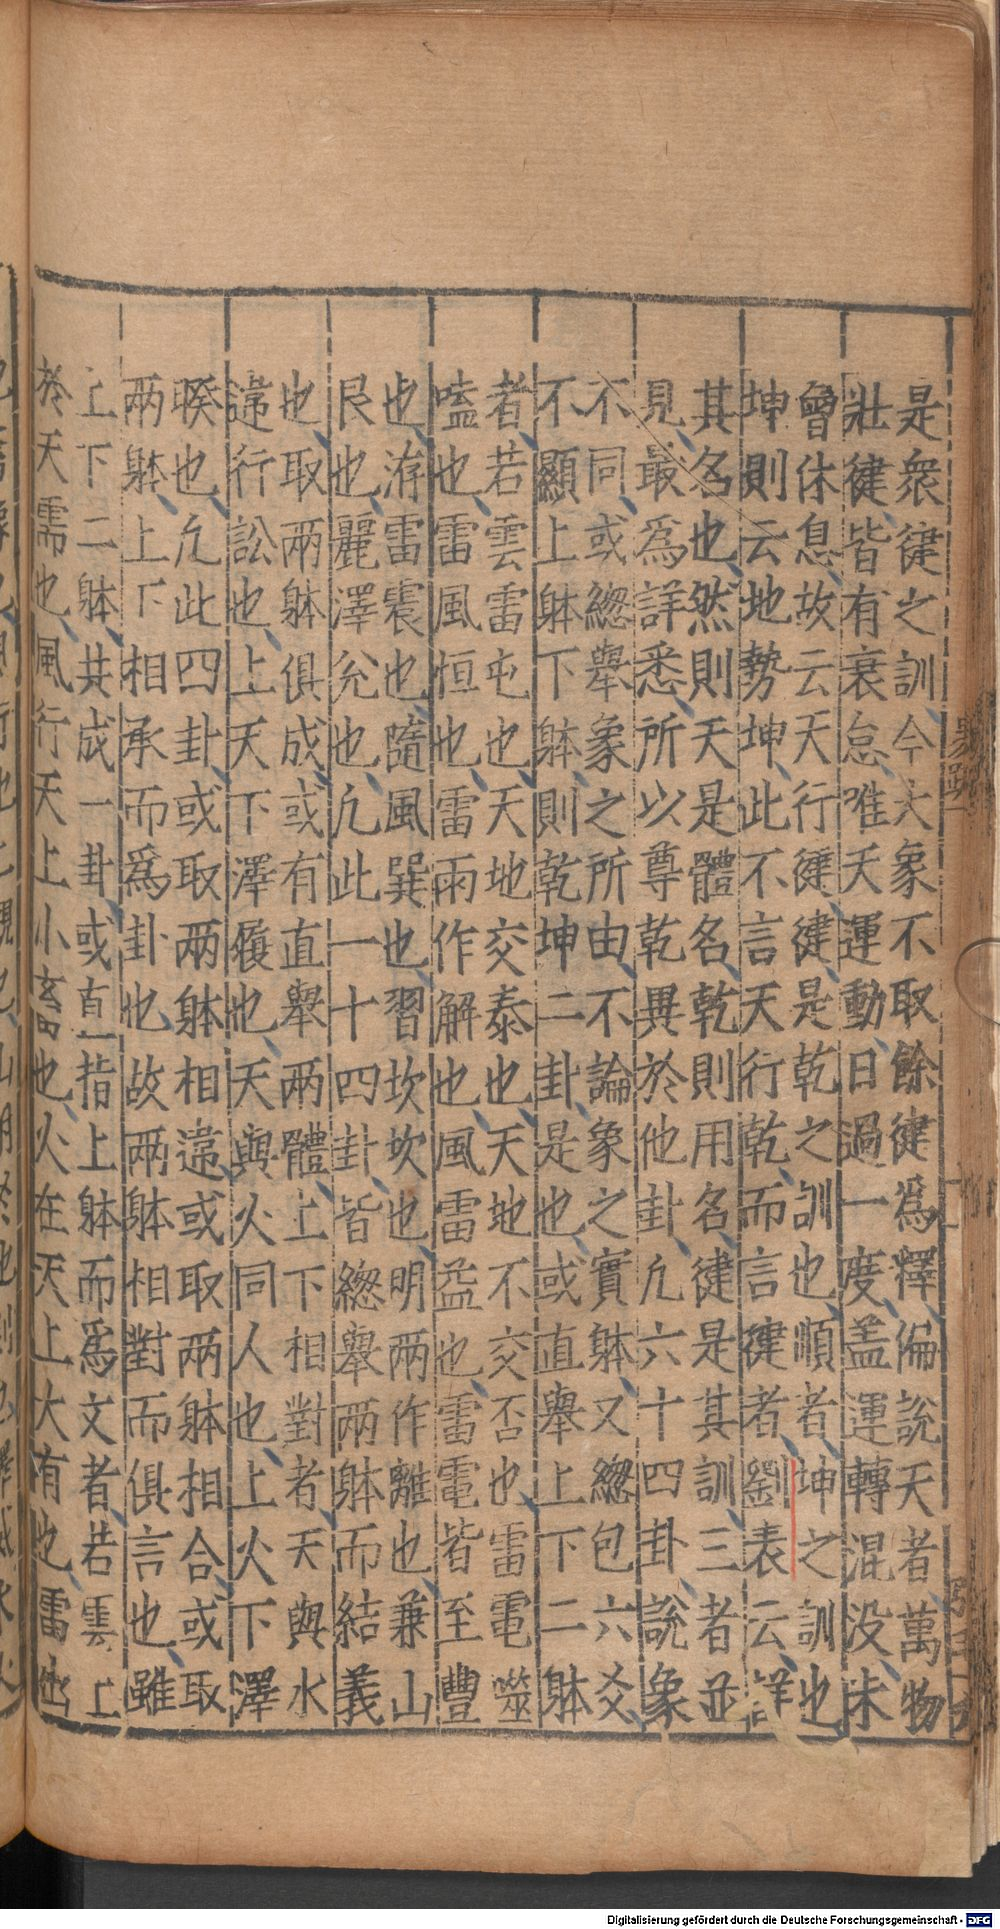 是衆健之訓今大象不取餘健爲釋偏說天者萬物
壯健皆有衰怠唯天運動日過一度盖運轉混没未
曾休息故云天行健健是乾之訓也順者坤之訓也
坤則云地勢坤此不言天行乾而言健者劉表云詳
其名也然則天是體名乾則用名健是其訓三者並
見最爲詳悉所以尊乾異於他卦凢六十四卦說象
不同或緫舉象之所由不論象之實躰又緫包六爻
不顯上躰下躰則乾坤二卦是也或直舉上下二躰
者若雲雷屯也天地交泰也天地不交否也雷電噬
嗑也雷風恒也雷雨作解也風雷益也雷電皆至豐
也洊雷震也隨風巽也習坎坎也明兩作離也兼山
艮也麗澤兊也凢此一十四卦皆緫舉兩躰而結義
也取兩躰俱成或有直舉兩體上下相對者天與水
違行訟也上天下澤履也天與火同人也上火下澤
暌也凢此四卦或取兩躰相違或取兩躰相合或取
兩躰上下相承而爲卦也故兩躰相對而俱言也雖
上下二躰共成一卦或直指上躰而爲文者若雲上
於天需也風行天上小畜也火在天上大有也雷出
Digitalisierung gefördert durch die Deutsche Forschungsgemeinschaft - DFG